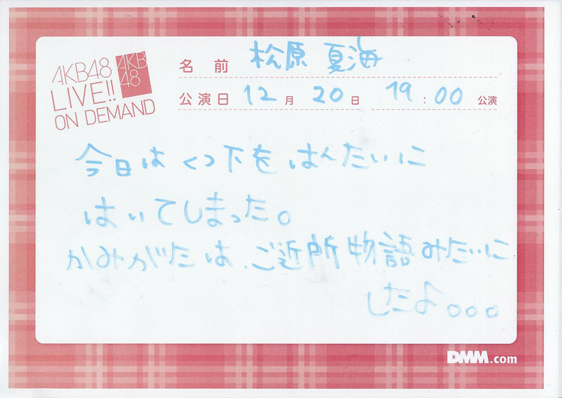 AKB48
LIVE!!
ON DEMAND
AKB
48
名前 松原 夏海
公演日 12月 20日 19:00 公演
今日はくつ下をはんたいに
はいてしまった。
かみがたは、ご近所物語みたいに
したよ。。。
DMM.com